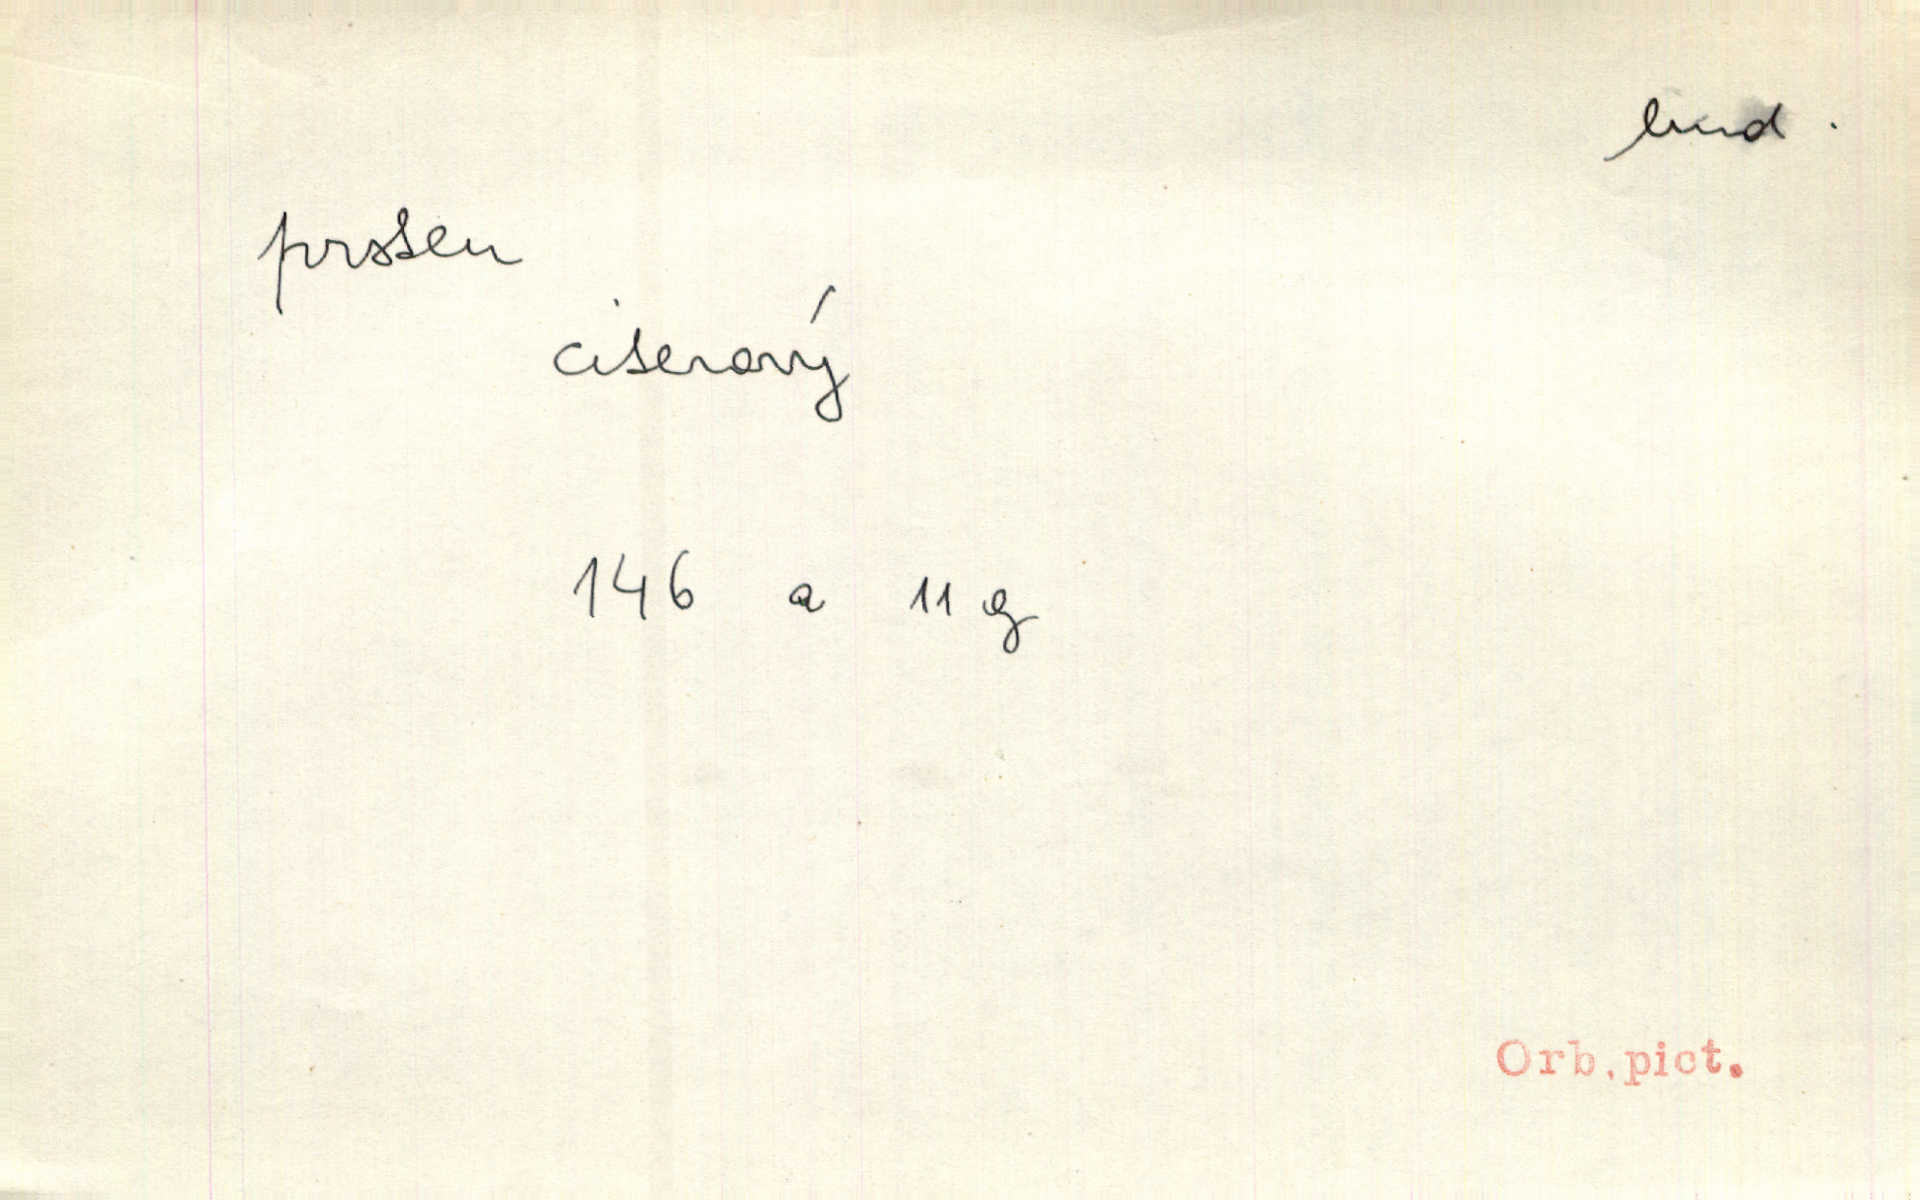 hud .
prsten
citerový
146 a 11 g
Orb.pict.